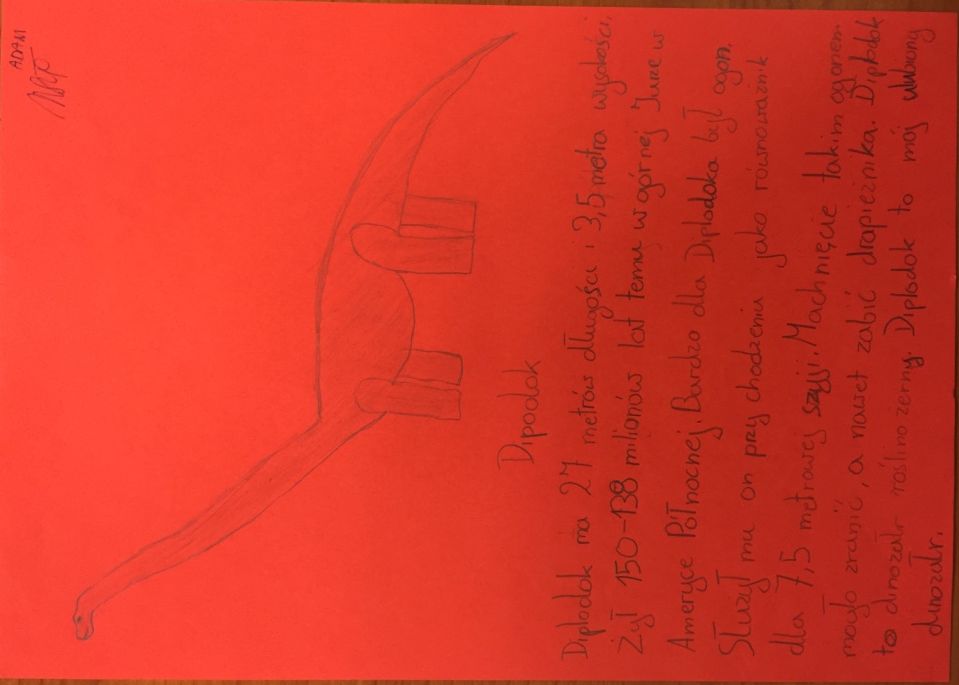 ADAM
Dipodok
Diplodok ma 27 metrów długości i 3,5 metra wysokości.
Żył 150-138 milionów lat temu w górnej Jurze w
Ameryce Północnej. Bardzo dla Diplodoka był ogon.
Służył mu on przy chodzeniu jako równoważnik
dla 7,5 metrowej szyji. Machnięcie takim ogonem
mogło zranić, a nawet zabić drapieżnika. Diplodok
to dinozaur roślinożerny. Diplodok to mój ulubiony
dinozaur.